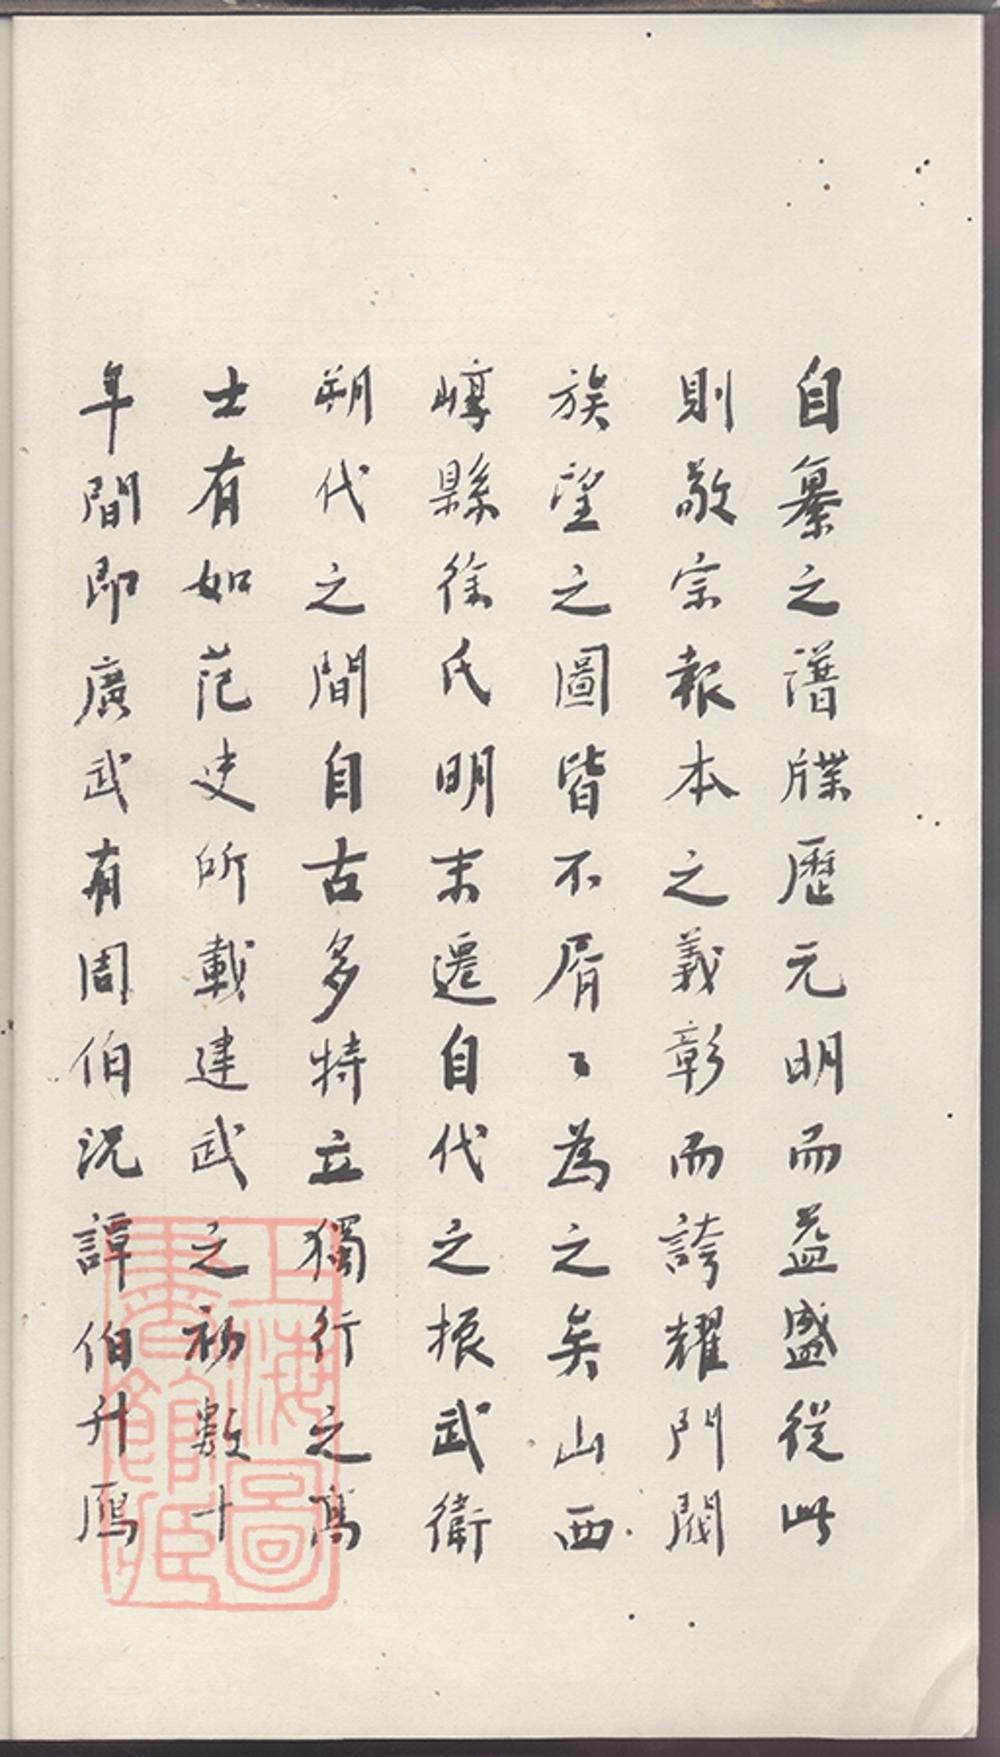 自纂之譜牒歷元明而益盛從此
則敬宗報本之義彰而誇耀門閥
族望之圖皆不屑〻為之矣山西
崞縣徐氏明末遷自代之振武衛
朔代之間自古多特立獨行之高
士有如范史所載建武之初數十
年間即廣武有周伯況譚伯升鴈
上海圖
書館藏